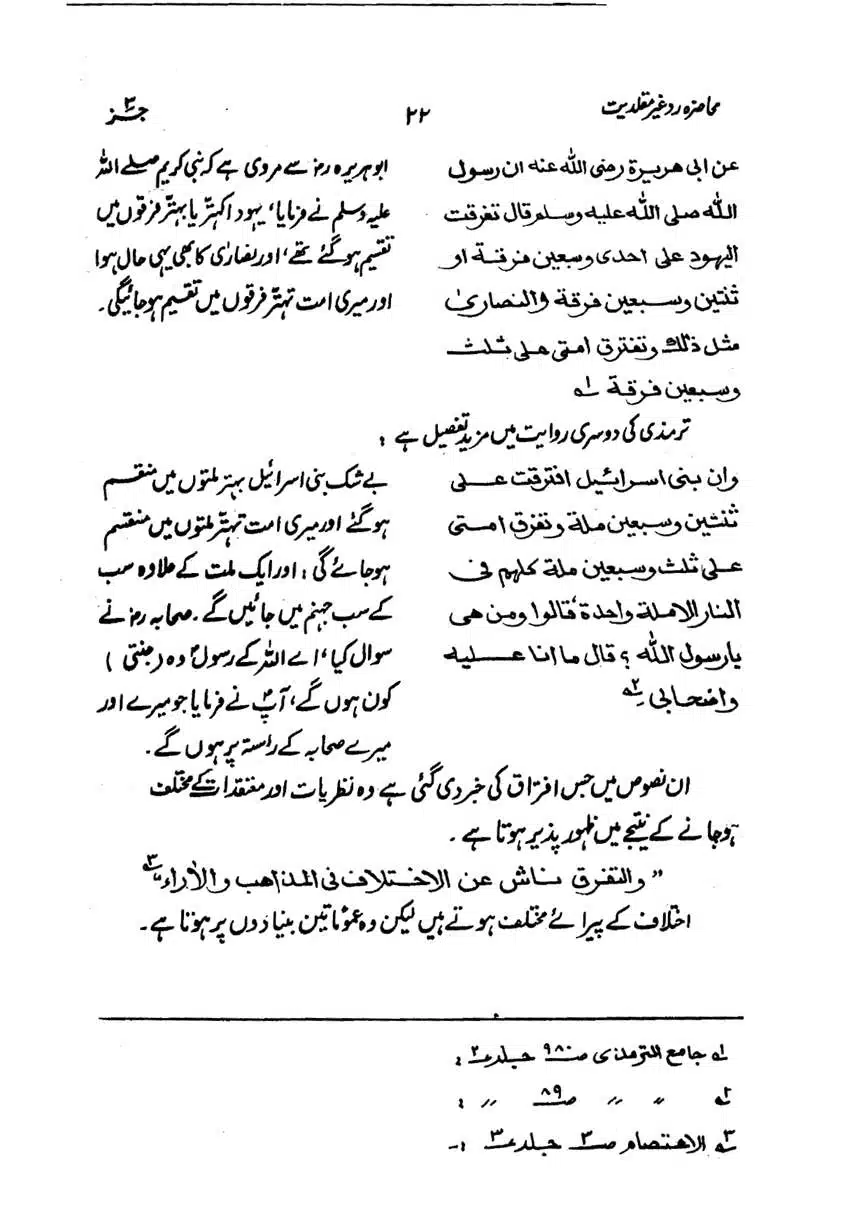 محاضرہ رد غیر مقلدیت ۲۲ جز ۳
عن ابی هریرة رضی الله عنه ان رسول
الله صلی الله علیه وسلم قال تفرقت
الیهود علی احدی وسبعین فرقة او
ثنتین وسبعین فرقة والنصاریٰ
مثل ذلك وتفترق امتی علی ثلث
وسبعین فرقة ؂۱
ابو ہریرہ رضؓ سے مروی ہے کہ نبی کریم صلے اللہ
علیہ وسلم نے فرمایا، یہود اکہتّر یا بہتّر فرقوں میں
تقسیم ہو گئے تھے، اور نصاریٰ کا بھی یہی حال ہوا
اور میری امت تہتّر فرقوں میں تقسیم ہو جائیگی۔
ترمذی کی دوسری روایت میں مزید تفصیل ہے :
وان بنی اسرائیل افترقت علی
ثنتین وسبعین ملة وتفرق امتی
علی ثلث وسبعین ملة کلهم فی
النار الاملة واحدة، قالوا ومن هی
یارسول الله ؟ قال ما انا علیه
واضحابی ؂۲
بے شک بنی اسرائیل بہتر ملتوں میں منقسم
ہو گئے اور میری امت تہتّر ملتوں میں منقسم
ہو جائے گی؛ اور ایک ملت کے علاوہ سب
کے سب جہنم میں جائیں گے۔ صحابہ رضؓ نے
سوال کیا، اے اللہ کے رسولؐ وہ (جنتی)
کون ہوں گے، آپؐ نے فرمایا جو میرے اور
میرے صحابہ کے راستہ پر ہوں گے۔
ان نصوص میں جس افتراق کی خبر دی گئی ہے وہ نظریات اور معتقدات کے مختلف
ہو جانے کے نتیجے میں ظہور پذیر ہوتا ہے۔
” والتفرق ناش عن الاختلاف فی المذاهب والأراء “ ؂۳
اختلاف کے پیرائے مختلف ہوتے ہیں لیکن وہ عموماً تین بنیادوں پر ہوتا ہے۔
؂۱ جامع الترمذی صـ ۹۸۰ جلد ۲ :
؂۲ ״ ״ صـ ۸۹ ״ :
؂۳ الاعتصام صـ ۳ جلد ۳ :۔